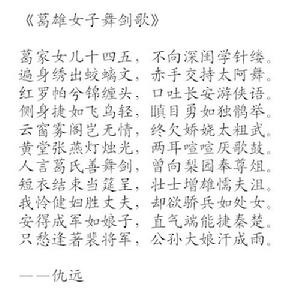 《葛雄女子舞剑歌》
葛家女儿十四五，不向深闺学针缕。
遍身绣出蛟螭文，赤手交持太阿舞。
红罗帕兮锦缠头，口吐长安游侠语。
侧身捷如飞鸟轻，瞋目勇如独鹘举。
云窗雾阁岂无情，终欠娇娆太粗武。
黄堂张燕灯烛光，两耳喧喧厌歌鼓。
人言葛氏善舞剑，曾向梨园奉尊俎。
短衣结束当筵呈，壮士增雄懦夫沮。
我怜健妇胜丈夫，却欲骄兵如处女。
安得成军如娘子，直气端能捷秦楚。
只愁逢著裴将军，公孙大娘汗成雨。
——仇远